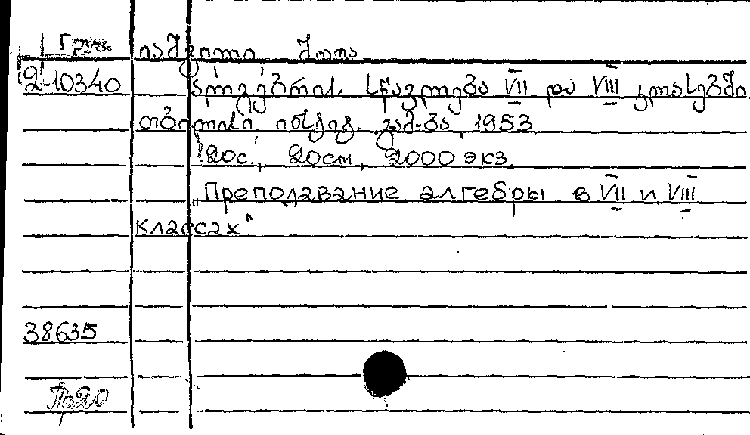 Груз. იაშვილი, შოთა
2-10340 ალგებრის სწავლება VII და VIII კლასებში
თბილისი, იოსებ. გამ-ბა, 1953
120с., 20см., 2000 экз.
„Преподавание алгебры в VII и VIII
классах"
38635